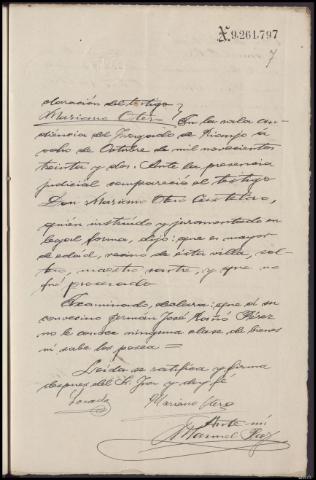 X9.261.797
7
claración del testigo
Mariano Otero
En la sala au-
diencia del Juzgado de Rianjo á
ocho de Octubre de mil novecientos
treinta y dos. Ante la presencia
judicial compareció el testigo
Don Mariano Otero Castelao,
quien instruído y juramentado en
legal forma, dijo: que es mayor
de edad, vecino de ésta villa, sol-
tero, maestro sastre, y que no
fué procesado
Examinado, declara: que á su
convecino Germán José Pérez
no le conoce ninguna clase de bienes
ni sabe los posea =
Leída se ratifica y firma
despues del Sr. Juez y doy fe
Losada
Mariano Otero
Ante mi
Manuel